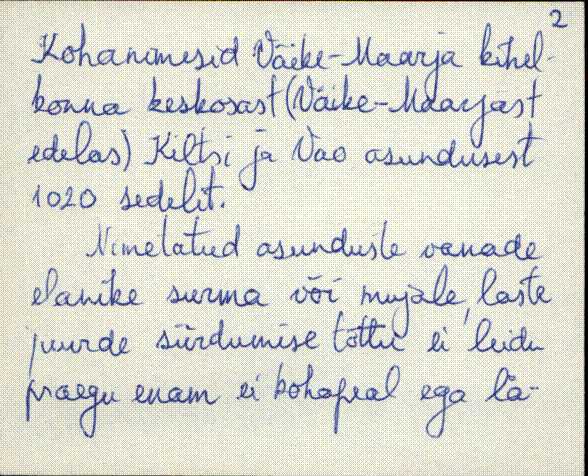 2
Kohanimesid Väike-Maarja kihel-
konna keskosast (Väike-Maarjast
edelas) Kiltsi ja Vao asundusest
1020 sedelit.
Nimetatud asunduste vanade
elanike surma või mujale, laste
juurde siirdumise tõttu ei leidu
praegu enam ei kohapeal ega lä-